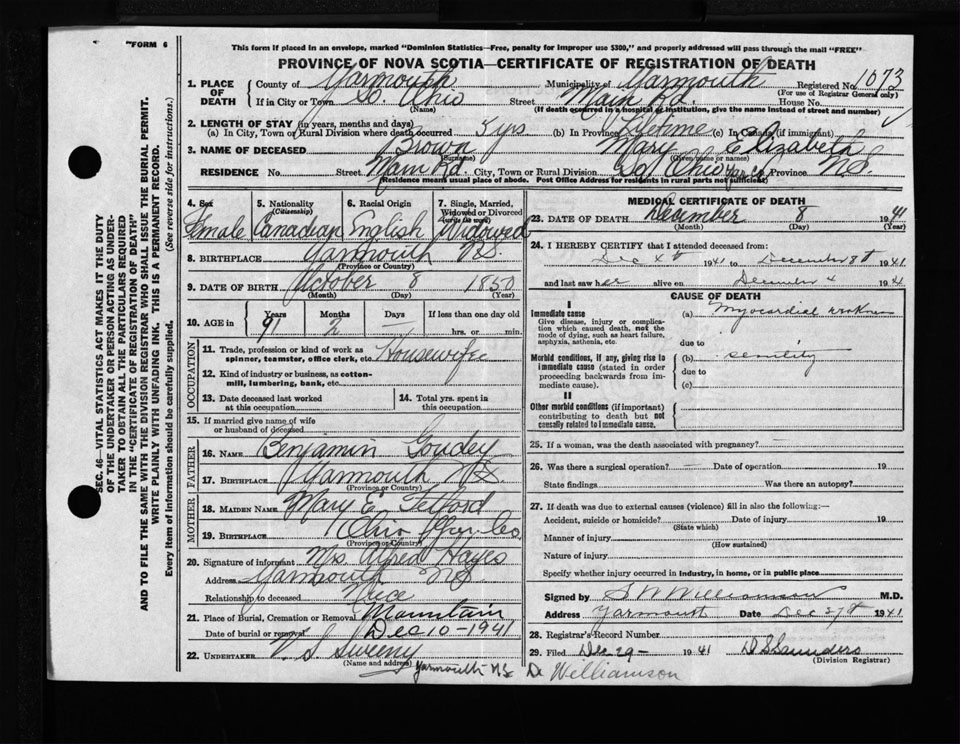 "FORM 6
This form if placed in an envelope, marked "Dominion Statistics—Free, penalty for improper use $300," and properly addressed will pass through the mail "FREE"
PROVINCE OF NOVA SCOTIA—CERTIFICATE OF REGISTRATION OF DEATH
1. PLACE OF DEATH County of Yarmouth Municipality of Yarmouth Registered No. 1073
(For use of Registrar General only)
If in City or Town So. Ohio (Name) Street Main Rd. House No.
(If death occurred in a hospital or institution, give the name instead of street and number)
2. LENGTH OF STAY (in years, months and days)
(a) In City, Town or Rural Division where death occurred 5 yrs (b) In Province Lifetime (c) In Canada (if immigrant)
3. NAME OF DECEASED Brown (Surname) Mary Elizabeth (Given name or names)
RESIDENCE No. Street Main Rd. City, Town or Rural Division So. Ohio Yar Co Province N.S.
(Residence means usual place of abode. Post Office Address for residents in rural parts not sufficient)
4. Sex Female
5. Nationality (Citizenship) Canadian
6. Racial Origin English
7. Single, Married, Widowed or Divorced (write the word) Widowed
8. BIRTHPLACE Yarmouth N.S. (Province or Country)
9. DATE OF BIRTH October 8 1850
(Month) (Day) (Year)
10. AGE in Years 91 Months 2 Days — If less than one day old hrs. or min.
OCCUPATION
11. Trade, profession or kind of work as spinner, teamster, office clerk, etc. Housewife
12. Kind of industry or business, as cotton-mill, lumbering, bank, etc.
13. Date deceased last worked at this occupation
14. Total yrs. spent in this occupation
15. If married give name of wife or husband of deceased
FATHER
16. NAME Benjamin Goudey
17. BIRTHPLACE Yarmouth N.S. (Province or Country)
MOTHER
18. MAIDEN NAME Mary E. Telford
19. BIRTHPLACE Ohio Yar Co. (Province or Country)
20. Signature of informant Mrs. Alfred Hayes
Address Yarmouth N.S.
Relationship to deceased Niece
21. Place of Burial, Cremation or Removal Mountain
Date of burial or removal Dec 10-1941
22. UNDERTAKER V S Sweeny
(Name and address) Yarmouth N.S.
MEDICAL CERTIFICATE OF DEATH
23. DATE OF DEATH December 8 1941
(Month) (Day) (Year)
24. I HEREBY CERTIFY that I attended deceased from:
Dec 4th 1941 to December 8th 1941
and last saw her alive on December 4 1941
CAUSE OF DEATH
I
Immediate cause
Give disease, injury or complication which caused death, not the mode of dying, such as heart failure, asphyxia, asthenia, etc.
(a) Myocardial weakness
due to
Morbid conditions, if any, giving rise to immediate cause (stated in order proceeding backwards from immediate cause).
(b) senility
due to
(c)
II
Other morbid conditions (if important) contributing to death but not causally related to immediate cause.
25. If a woman, was the death associated with pregnancy? —
26. Was there a surgical operation? — Date of operation 19
State findings Was there an autopsy?
27. If death was due to external causes (violence) fill in also the following:—
Accident, suicide or homicide? Date of injury 19
(State which)
Manner of injury
(How sustained)
Nature of injury
Specify whether injury occurred in industry, in home, or in public place
Signed by S W Williamson M.D.
Address Yarmouth Date Dec 27th 1941
28. Registrar's Record Number
29. Filed Dec 29- 1941 D S Saunders
(Division Registrar)
Dr Williamson
SEC. 46—VITAL STATISTICS ACT MAKES IT THE DUTY
OF THE UNDERTAKER OR PERSON ACTING AS UNDER-
TAKER TO OBTAIN ALL THE PARTICULARS REQUIRED
IN THE "CERTIFICATE OF REGISTRATION OF DEATH"
AND TO FILE THE SAME WITH THE DIVISION REGISTRAR WHO SHALL ISSUE THE BURIAL PERMIT.
WRITE PLAINLY WITH UNFADING INK. THIS IS A PERMANENT RECORD.
Every item of Information should be carefully supplied. (See reverse side for instructions.)